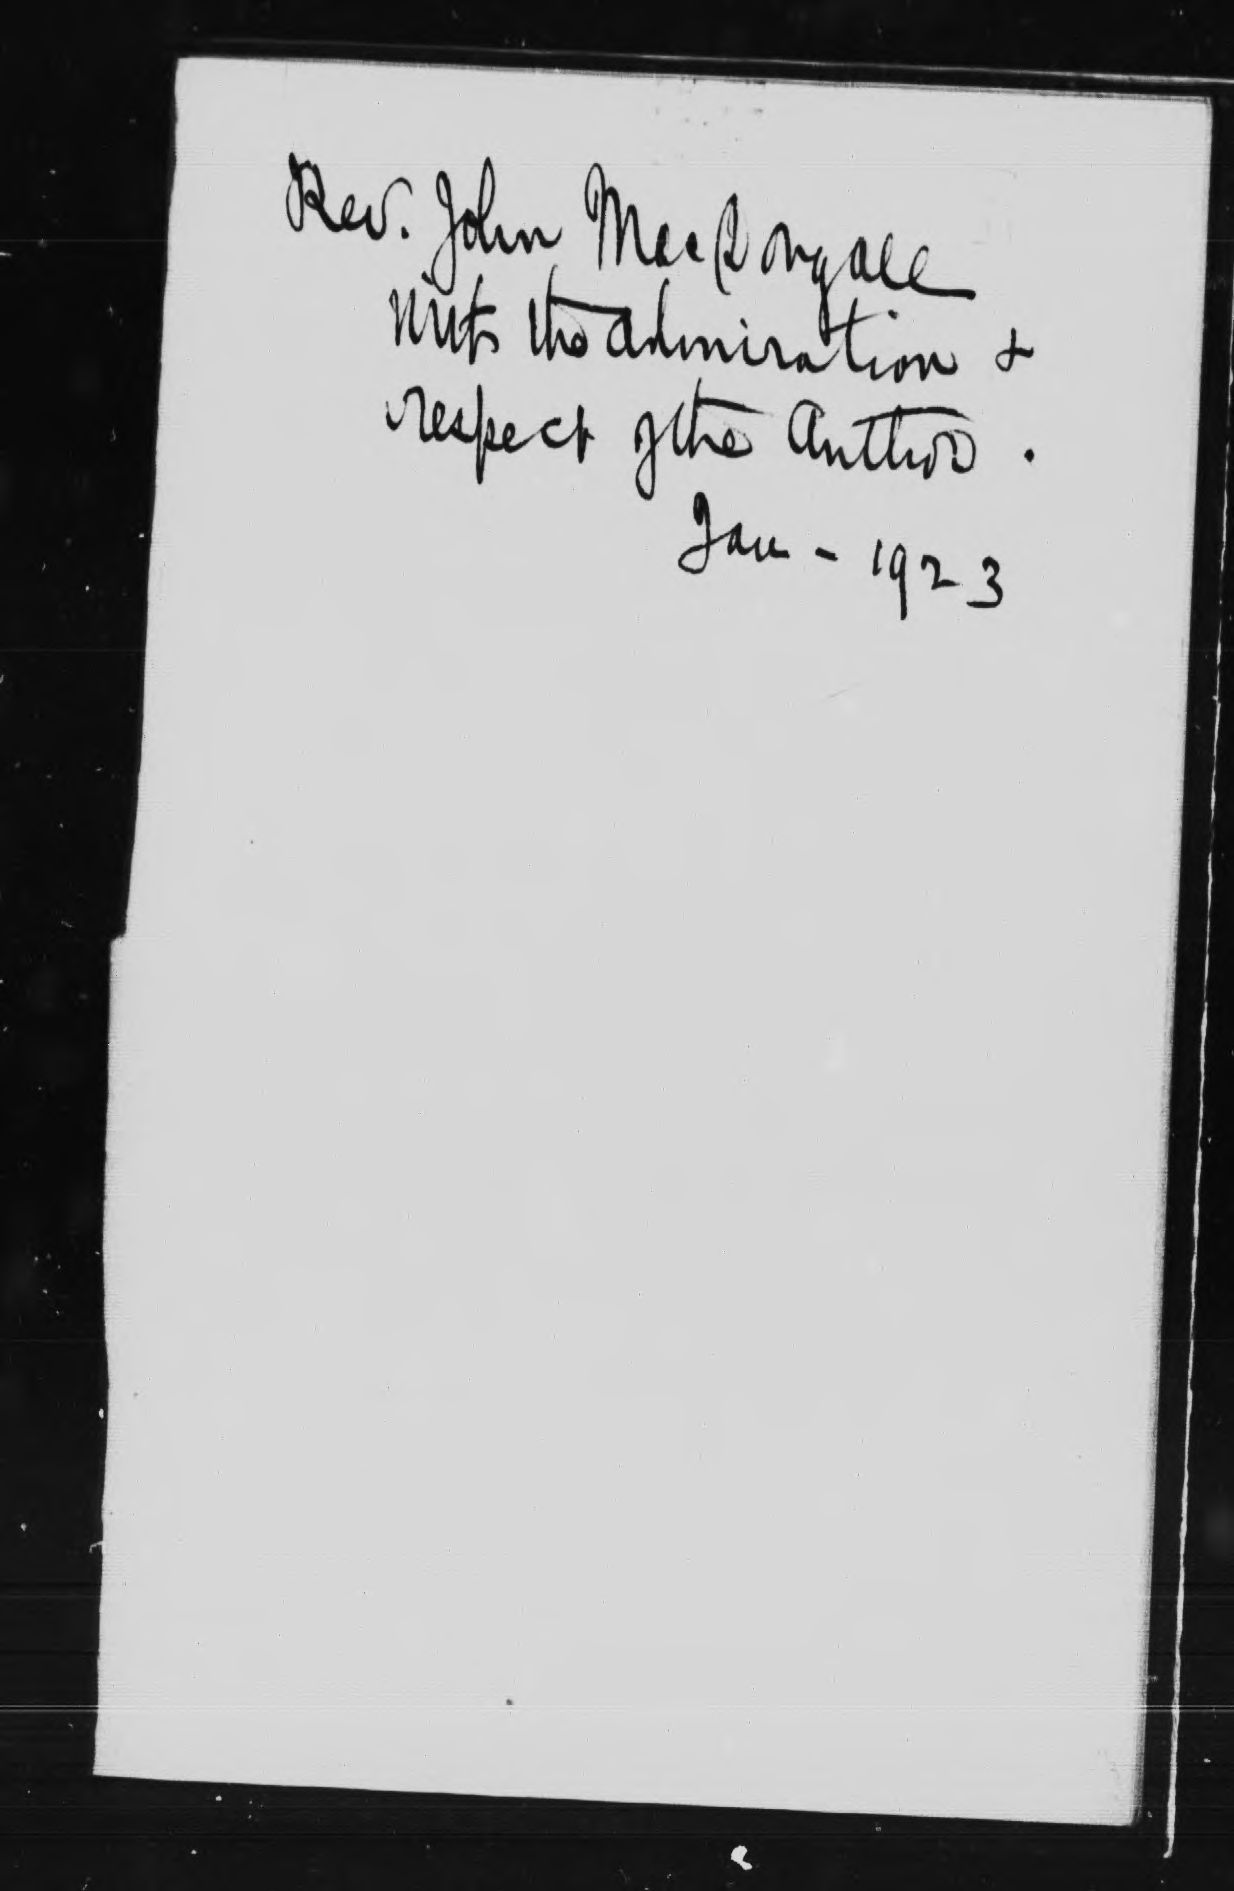 Rev. John MacDougall
with the admiration &
respect of the Author.
Jan - 1923